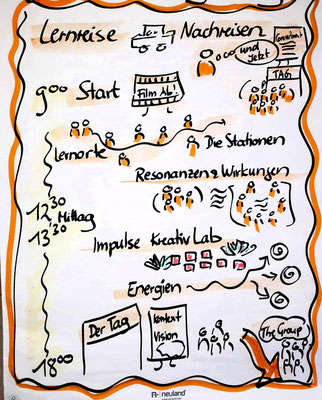 Lernreise Nachreisen
und jetzt
TAG
9°° Start
Film Ab!
Lernorte
Die Stationen
Resonanzen & Wirkungen
12³⁰ Mittag
13³⁰
Impulse Kreativ Lab
Energien
Der Tag
Kontext
Vision
The Group
18°°
neuland